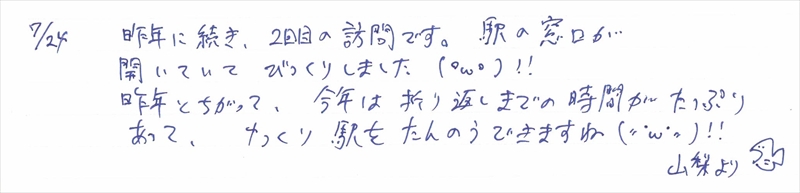 7/24 昨年に続き、2回目の訪問です。駅の窓口が
開いていて びっくりしました (°ω°)!!
昨年とちがって、今年は折り返しまでの時間がたっぷり
あって、ゆっくり駅をたんのうできますね (''・ω・'')!!
山梨より